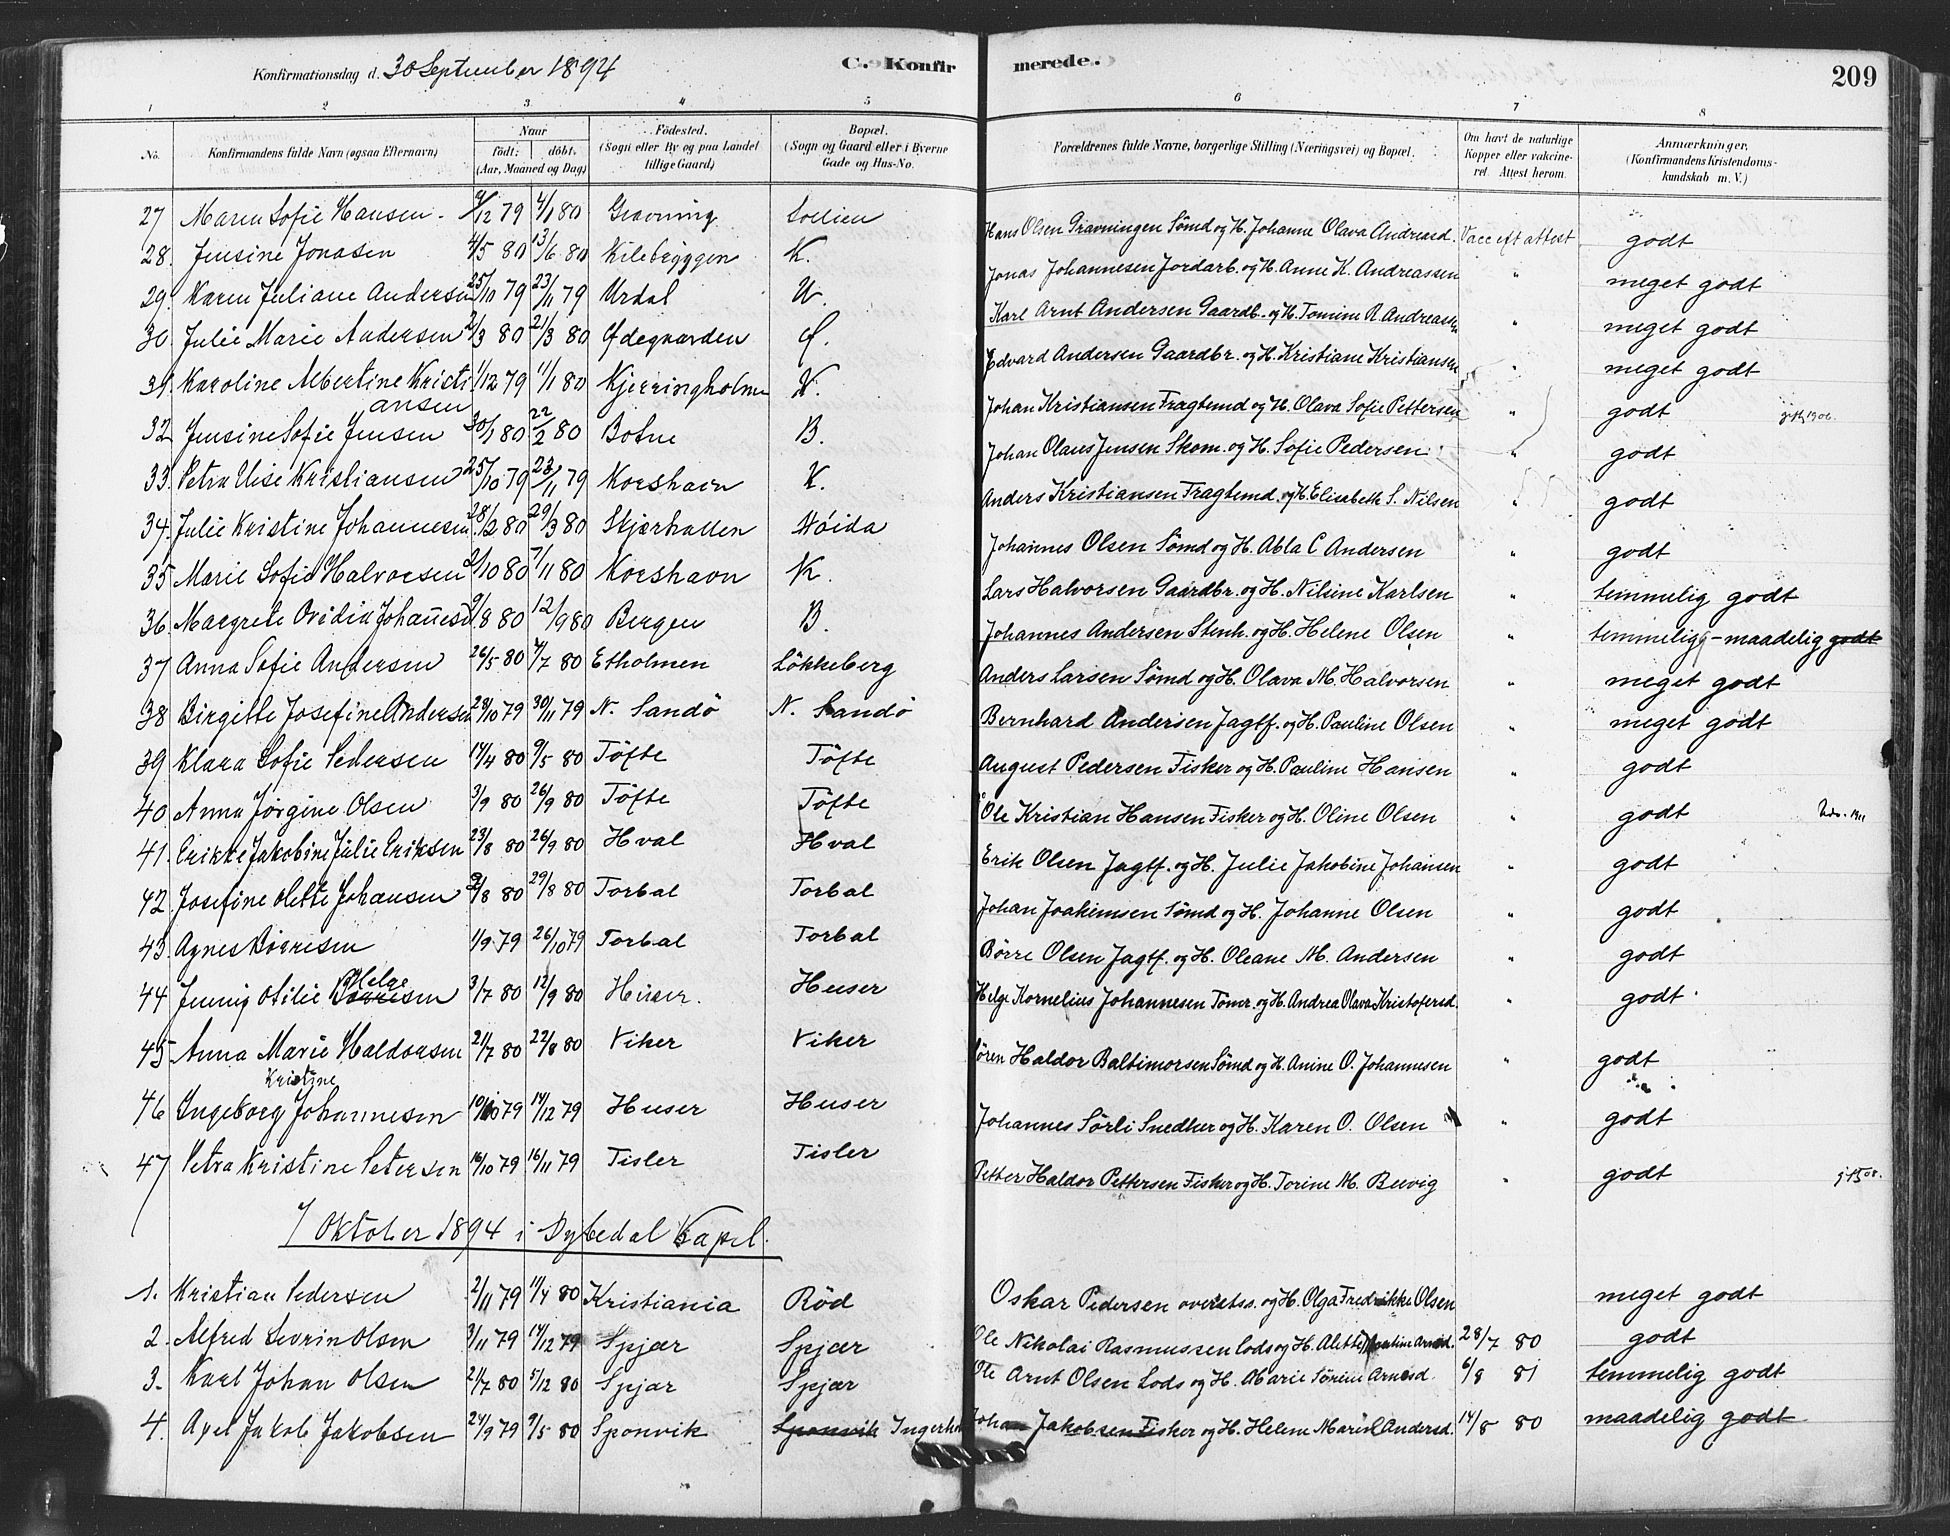 Konfirmationsdag d. 30 September 1894 C. Konfirmerede. 209
1 2 3 4 5 6 7 8
No. Konfirmandens fulde Navn (ogsaa Efternavn) Naar født: døbt: (Aar, Maaned og Dag) Fødested. (Sogn eller By og paa Landet tillige Gaard) Bopæl. (Sogn og Gaard eller i Byerne Gade og Hus-No. Forældrenes fulde Navne, borgerlige Stilling (Næringsvei) og Bopæl. Om havt de naturlige Kopper eller vakcineret. Attest herom. Anmærkninger, (Konfirmandens Kristendomskundskab m. V.)
27 Maren Sofie Hansen. /12 79 4/1 80 Gravning Hans Olsen Gravningen Sømd og H. Johanne Olava Andreasd. Vacc eft attest godt
28. Jensine Jonasen 4/5 80 13/6 80 Kilebryggen K. Jonas Johannesen Jordarb. og H. Anne K. Andreassen " meget godt
29. Karen Juliane Andersen 25/10 79 23/11 79 Urdal U. Karl Arnt Andersen Gaardb. og H. Tomine R. Andreassen " meget godt
30 Julie Marie Andersen 2/3 80 21/3 80 Ødegaarden Ø. Edvard Andersen Gaardbr. og H. Kristiane Kristiansen " meget godt
31 Karoline Albertine Kristiansen 1/12 79 11/1 80 Kjerringholmen K. Johan Kristiansen Fragtemd og H. Olava Sofie Pettersen " godt gft 1906.
32 Jensine Sofie Jensen 30/1 80 22/2 80 Botne B. Johan Olaus Jensen Skom. og H. Sofie Pedersen " godt
33. Petra Elise Kristiansen 25/10 79 23/11 79 Korshavn K. Anders Kristiansen Fragtemd. og H. Elisabeth S. Nilsen " godt
34. Julie Kristine Johannesen 28/2 80 29/3 80 Skjærhallen Høida Johannes Olsen Sømd og H. Abla C Andersen " godt
35 Marie Sofie Halvorsen 2/10 80 7/11 80 Korshavn K. Lars Halvorsen Gaardbr. og H. Nilsine Karlsen " temmelig godt
36. Margrete Ovidia Johannesd 9/8 80 12/9 80 Bergen B. Johannes Andersen Stenh. og H. Helene Olsen " temmelig - maadelig godt
37 Anna Sofie Andersen 26/5 80 4/7 80 Etholmen Løkkeberg Anders Larsen Sømd og H. Olava M. Halvorsen " meget godt
38 Birgitte Josefine Andersen 28/10 79 30/11 79 N. Sandø N. Sandø Bernhard Andersen Jagtf. og H. Pauline Olsen " meget godt
39 Klara Sofie Pedersen 17/4 80 9/5 80 Tøfte Tøfte August Pedersen Fisker og H. Pauline Hansen " godt
40 Anna Jørgine Olsen 3/9 80 26/9 80 Tøfte Tøfte Ole Kristian Hansen Fisker og H. Oline Olsen " godt
41. Erikke Jakobine Julie Eriksen 23/8 80 26/9 80 Hval Hval Erik Olsen Jagtf. og H. Julie Jakobine Johansen " godt
42 Josefine Olette Johansen /8 80 29/8 80 Torbal Torbal Johan Joakimsen Sømd og H. Johanne Olsen " godt
43. Agnes Børresen 1/9 79 26/10 79 Torbal Torbal Børre Olsen Jagtf. og H. Oleane M. Andersen " godt
44 Jenny Otilie Børresen Helge 3/7 80 12/9 80 Huser. Huser Helge Kornelius Johannesen Tømr. og H. Andrea Olava Kristofersd. " godt
45 Anna Marie Haldorsen 21/7 80 22/8 80 Viker Viker Søren Haldor Baltimorsen Sømd og H. Anine O. Johannesen " godt
46 Ingeborg Kristine Johannesen 10/10 79 14/12 79 Huser Huser Johannes Sørli Snedker og H. Karen O. Olsen " godt
47 Petra Kristine Petersen 16/10 79 16/11 79 Tisler Tisler Petter Haldor Pettersen Fisker og H. Torine M. Bevig " godt gft 08.
7 Oktober 1894 i Dybedal Kapel.
1. Kristian Pedersen 2/11 79 11/4 80 Kristiania Rød Oskar Pedersen overstss. og H. Olga Fredrikke Olsen meget godt
2. Alfred Sevrin Olsen 3/11 79 14/12 79 Spjær Spjær Ole Nikolai Rasmussen Lods og H. Alette 28/7 80 godt
3. Karl Johan Olsen 21/7 80 5/12 80 Spjær Spjær Ole Arnt Olsen Lods og H. Marie Sørine Arnesd. 6/8 81 temmelig godt
4. Axel Jakob Jakobsen 24/9 79 9/5 80 Sponvik Sponvik Johan Jakobsen Fisker og H. Helene Marie Andersd. 14/8 80 maadelig godt